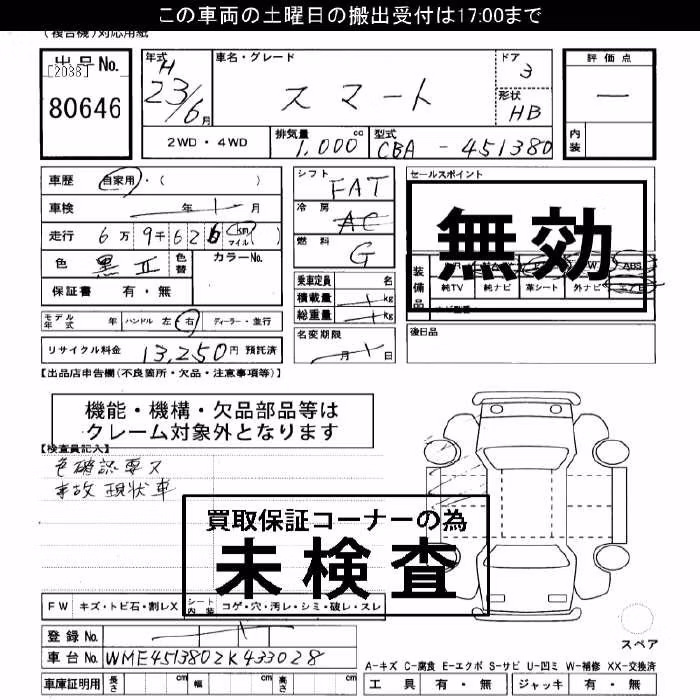 この車両の土曜日の搬出受付は17:00まで
(複合機)対応用紙
出品No.
[2038]
80646
年式 車名・グレード ドア 評価点
H 23/6月 スマート 3 —
形状 HB
内装
2WD・4WD 排気量 1,000 cc 型式 CBA - 451380
車歴 自家用・( )
車検 年 月
走行 6万9千626 km マイル ( )
色 黒Ⅱ 色替 カラーNo.
保証書 有・無
モデル年式 年 ハンドル 左 右 ディーラー・並行
リサイクル料金 13,250円 預託済
シフト FAT
冷房 AC
燃料 G
乗車定員 名
積載量 kg
総重量 kg
名変期限 月 日
セールスポイント
無効
装備品 ABS
純TV 純ナビ 革シート 外ナビ
後日品
【出品店申告欄(不良箇所・欠品・注意事項等)】
機能・機構・欠品部品等は
クレーム対象外となります
【検査員記入】
色確認要ス
事故 現状車
買取保証コーナーの為
未検査
FW キズ・トビ石・割レX シート内装 コゲ・穴・汚レ・シミ・破レ・スレ
登録No.
車台No. WME4513802K433028
車庫証明用 長さ cm 幅 cm 高さ cm
スペア
A-キズ C-腐食 E-エクボ S-サビ U-凹ミ W-補修 XX-交換済
工具 有・無 ジャッキ 有・無